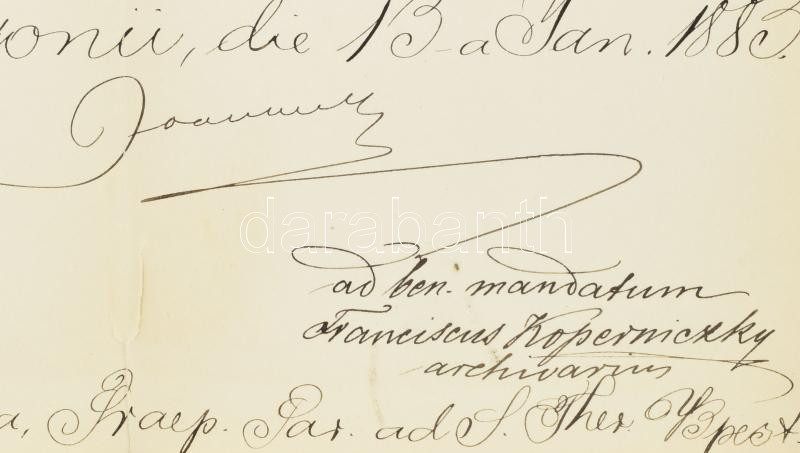 onii, die 13-a Jan. 1883.
Joannes
darabanth
ad ben. mandatum
Franciscus Koperniczky
archivarius
a, Praep. Par. ad S. Ther Bpest.